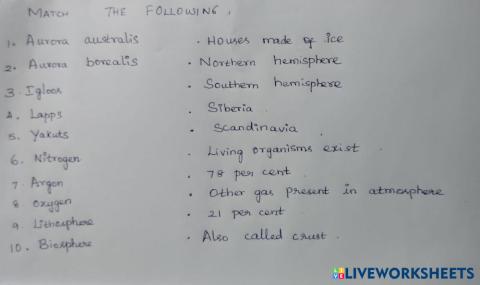 MATCH THE FOLLOWING.
1. Aurora australis . Houses made of ice
2. Aurora borealis . Northern hemisphere
3. Igloos . Southern hemisphere
4. Lapps . Siberia
5. Yakuts . Scandinavia
6. Nitrogen . Living organisms exist
7. Argon . 78 per cent
8. Oxygen . Other gas present in atmosphere
9. Lithosphere . 21 per cent
10. Biosphere . Also called crust
LIVEWORKSHEETS